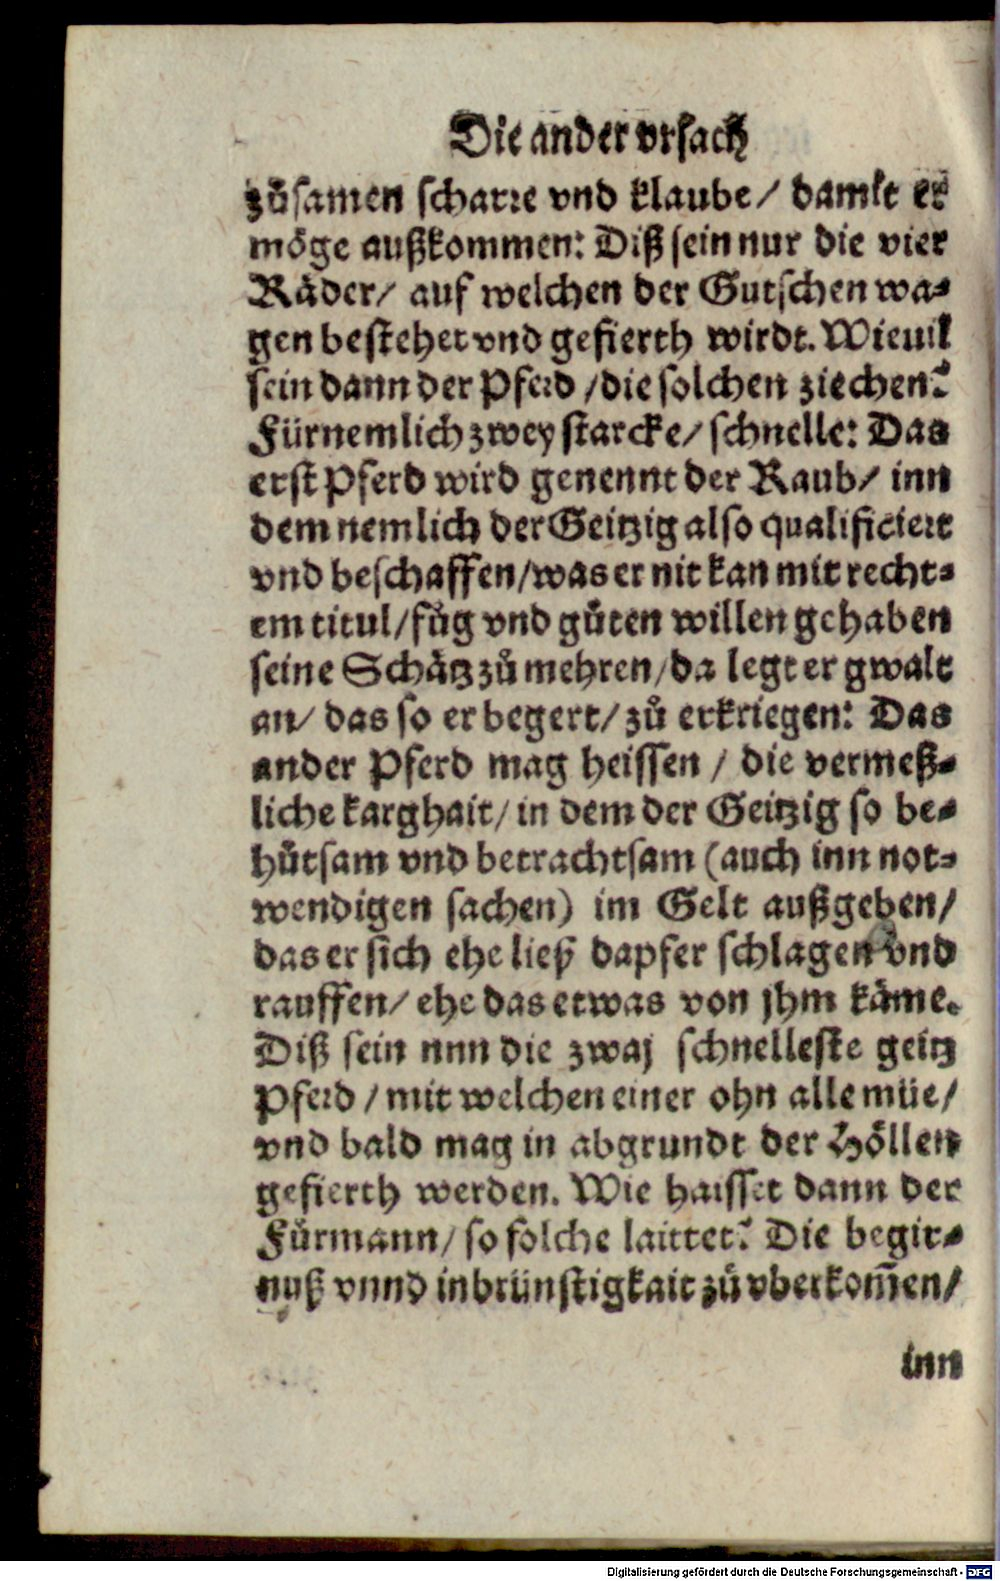 Die ander vrsach
zůsamen scharre vnd klaube/ damit er
möge außkommen: Diß sein nur die vier
Räder/ auf welchen der Gutschen wa-
gen bestehet vnd gefierth wirdt. Wieuil
sein dann der Pferd/ die solchen ziechen?
Fürnemlich zwey starcke/ schnelle: Das
erst Pferd wird genennt der Raub/ inn
dem nemlich der Geitzig also qualificiert
vnd beschaffen/ was er nit kan mit recht-
em titul/ fůg vnd gůten willen gehaben
seine Schätz zů mehren/ da legt er gwalt
an/ das so er begert/ zů erkriegen: Das
ander Pferd mag heissen/ die vermeß-
liche karghait/ in dem der Geitzig so be-
hůtsam vnd betrachtsam (auch inn not-
wendigen sachen) im Gelt außgeben/
das er sich ehe ließ dapfer schlagen vnd
rauffen/ ehe das etwas von jhm käme.
Diß sein nnn die zwaj schnelleste geitz
Pferd/ mit welchen einer ohn alle müe/
vnd bald mag in abgrundt der Höllen
gefierth werden. Wie haisset dann der
Fůrmann/ so solche laittet? Die begir-
nuß vnnd inbrünstigkait zů vberkom̄en/
inn
Digitalisierung gefördert durch die Deutsche Forschungsgemeinschaft - DFG